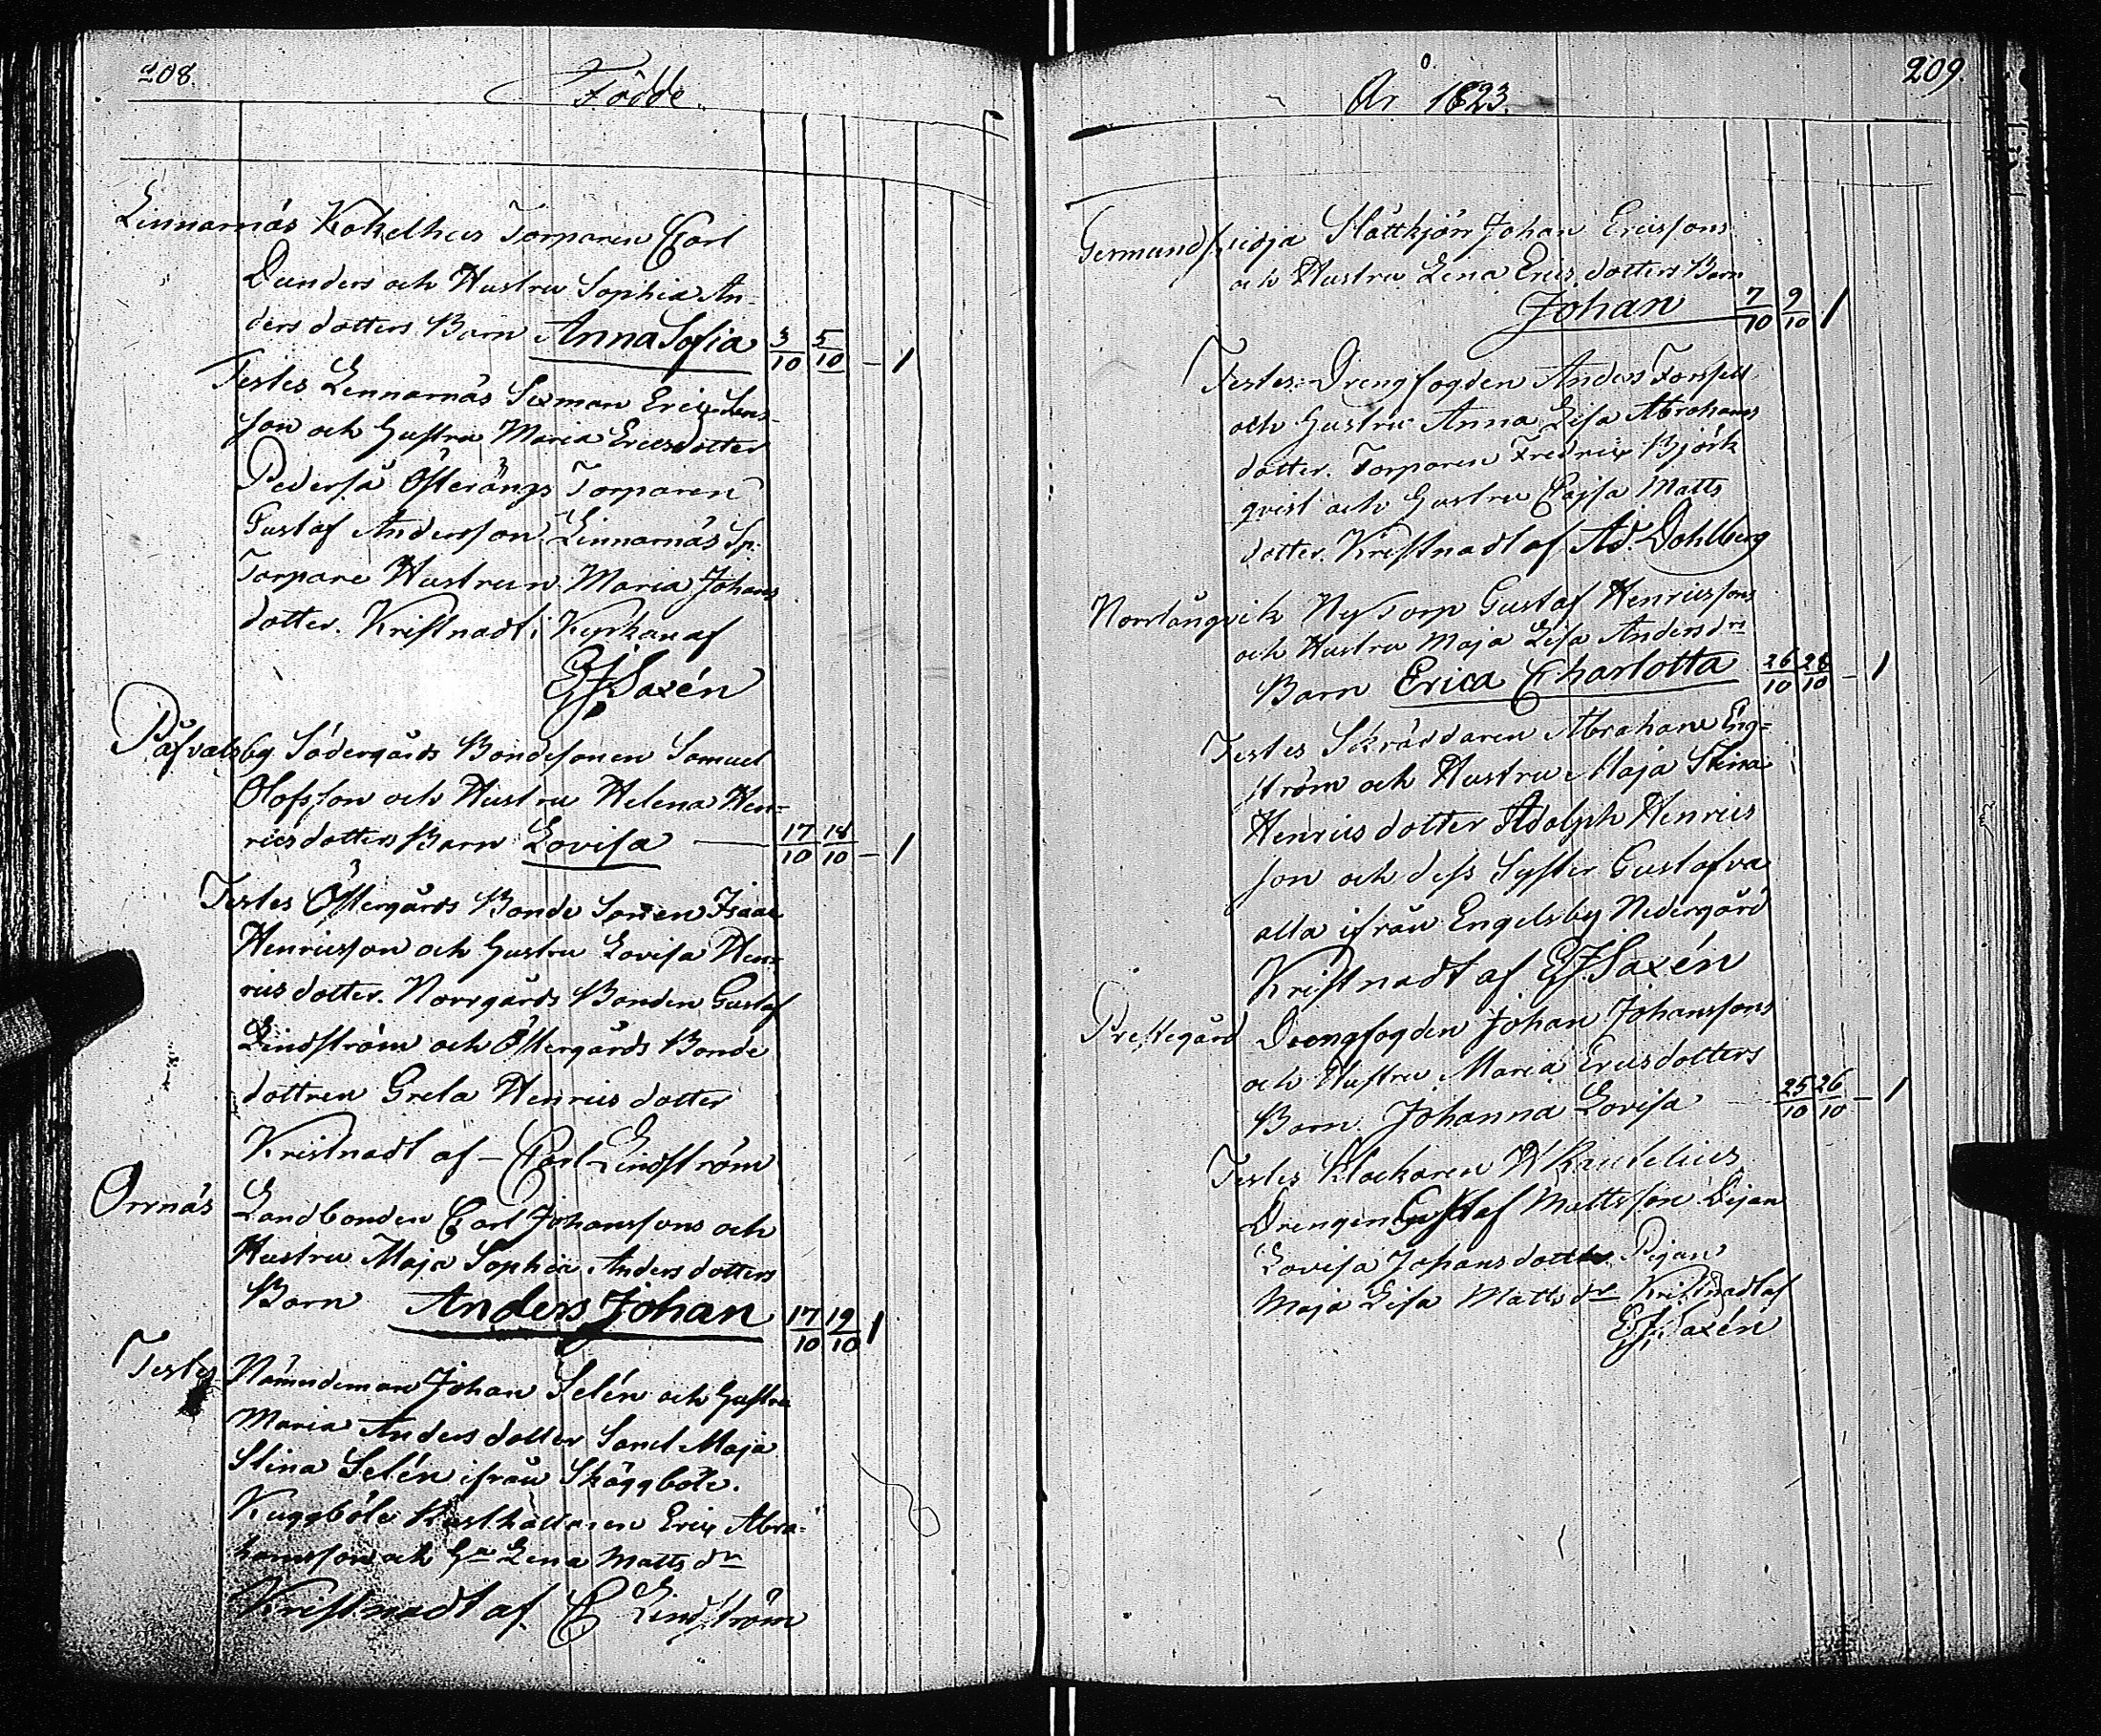 208.
Födde.
Linnarnäs Kokelhus Torparen Carl
Dunders och Hustru Sophia An-
dersdotters Barn Anna Sofia 3/10 5/10 - 1
Testes Lennarnäs Sexman Eric Jans-
son och Hustru Maria Ericsdotter
Pederså Österängs Torparen
Gustaf Andersson Linnarnäs Sp.
Torpare Hustrun Maria Johans
dotter. Kristnadt i Kyrkan af
EJSaxén
Påfvalsby Södergårds Bondesonen Samuel
Olofsson och Hustru Helena Hen=
ricsdotters Barn Lovisa 17/10 18/10 - 1
Testes Östergårds Bonde Sonen Isaac
Henricsson och Hustru Lovisa Hen=
rics dotter. Norrgårds Bonden Gustaf
Lindström och Östergårds Bonde
dottren Greta Henrics dotter
Kristnadt af Carl Lindström
Orrnäs Landbonden Carl Johanssons och
Hustru Maja Sophia Anders dotters
Barn Anders Johan 17/10 19/10 1
Testes Nämndeman Johan Selén och Hustru
Maria Anders dotter Samt Maja
Stina Selén ifrån Skäggböle.
Kuggböle Rusthållaren Eric Abra=
hamsson och Hu Lena Matts dr
Kristnadt af C Lindström
209.
År 1823.
Germundsvidja Slåttkjörr Johan Ericssons
och Hustru Lena Erics dotters Barn
Johan 7/10 9/10 1
Testes: Drengfogden Anders Forssell
och Hustru Anna Lisa Abrahams
dotter. Torparen Fredric Björk
qvist och Hustru Cajsa Matts
dotter. Kristnadt af Ad. Dahlberg
Norrlångvik Ny Torp Gustaf Henricssons
och Hustru Maja Lisa Anders drs
Barn Erica Charlotta 26/10 28/10 - 1
Testes Skräddaren Abraham Eng=
ström och Hustru Maja Stina
Henrics dotter Adolph Henrics
son och dess Syster Gustafva
alla ifrån Engelsby Nedergård
Kristnadt af EJSaxén
Prestegård Drengfogden Johan Johanssons
och Hustru Maria Ericsdotters
Barn Johanna Lovisa 25/10 26/10 - 1
Testes Klockaren W
Drengen Gustaf Mattsson Pijan
Lovisa Johans dotter Pijan
Maja Lisa Matts dr Kristnadt af
EJSaxén